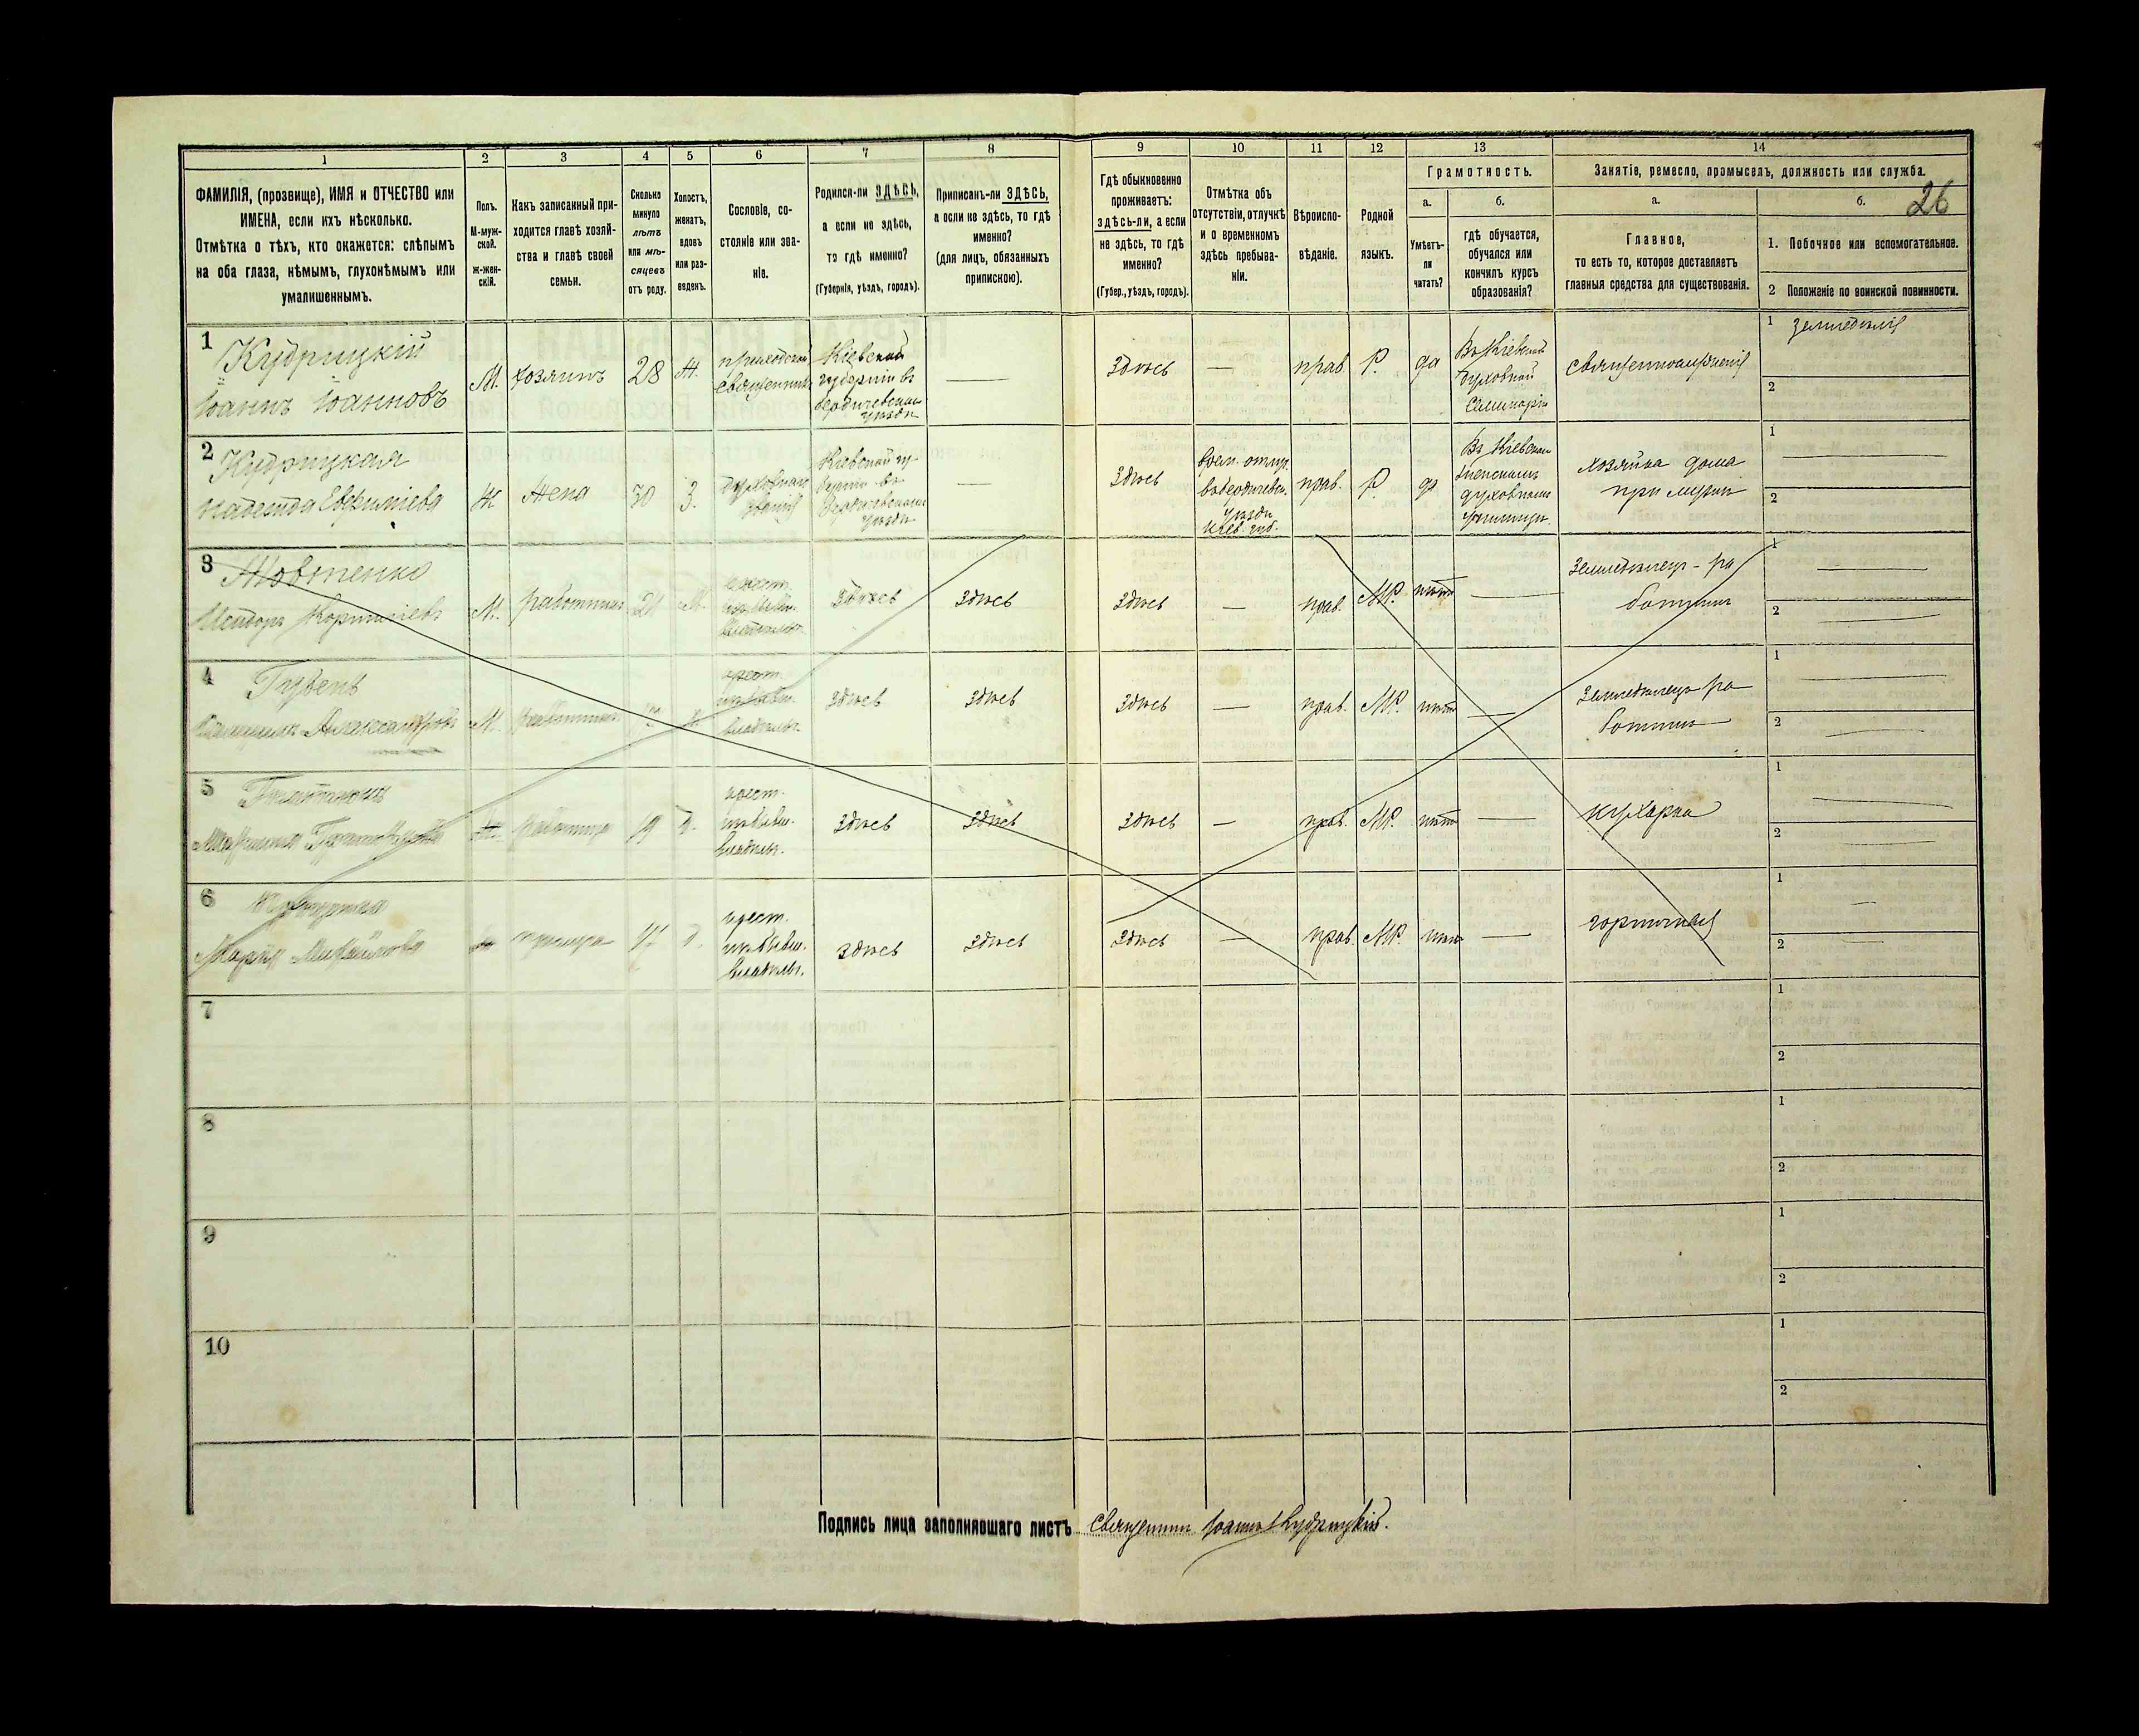 1 2 3 4 5 6 7 8 9 10 11 12 13 14
ФАМИЛІЯ, (прозвище), ИМЯ и ОТЧЕСТВО или
ИМЕНА, если ихъ нѣсколько.
Отмѣтка о тѣхъ, кто окажется: слѣпымъ
на оба глаза, нѣмымъ, глухонѣмымъ или
умалишеннымъ.
Полъ.
М-муж-
ской.
ж-жен-
скій.
Какъ записанный при-
ходится главѣ хозяй-
ства и главѣ своей
семьи.
Сколько
минуло
лѣтъ
или мѣ-
сяцевъ
отъ роду.
Холостъ,
женатъ,
вдовъ
или раз-
веденъ.
Сословіе, со-
стояніе или зва-
ніе.
Родился-ли ЗДѢСЬ,
а если не здѣсь,
то гдѣ именно?
(Губернія, уѣздъ, городъ).
Приписанъ-ли ЗДѢСЬ,
а если не здѣсь, то гдѣ
именно?
(для лицъ, обязанныхъ
припискою).
Гдѣ обыкновенно
проживаетъ:
здѣсь-ли, а если
не здѣсь, то гдѣ
именно?
(Губер., уѣздъ, городъ).
Отмѣтка объ
отсутствіи, отлучкѣ
и о временномъ
здѣсь пребыва-
ніи.
Вѣроиспо-
вѣданіе.
Родной
языкъ.
Грамотность.
а.
Умѣетъ-
ли
читать?
б.
гдѣ обучается,
обучался или
кончилъ курсъ
образованія?
Занятіе, ремесло, промыселъ, должность или служба.
а.
Главное,
то есть то, которое доставляетъ
главныя средства для существованія.
б.
26
1. Побочное или вспомогательное.
2 Положеніе по воинской повинности.
1
Кудрицкій
Іоаннъ Іоанновъ
М.
хозяинъ
28
Ж.
приходской
священникъ
Кіевской
губерніи въ
Бердичевскомъ
уѣздѣ
—
Здѣсь
—
прав.
Р.
да
Въ Кіевской
духовной
Семинаріи
священнослуженіе
1 земледѣліе
2
2
Кудрицкая
Надежда Евфиміева
Ж
Жена
30
З.
духовнаго
званія
Кіевской гу-
берніи въ
Бердичевскомъ
уѣздѣ
—
Здѣсь
врем. отлуч.
въ бердичевск.
уѣздѣ
Кіев. губ.
прав.
Р.
да
Въ Кіевском
духовномъ
училищѣ.
хозяйка дома
при мужѣ
1 —
2 —
3
Жовтенко
М.
работникъ
крест.
изъ бывш.
владѣльч.
Здѣсь
Здѣсь
Здѣсь
—
прав.
МР.
нѣтъ
—
Земледѣлецъ-ра
ботникъ
1 —
2 —
4
Александровъ
М.
работникъ
крест.
изъ бывш.
владѣльч.
Здѣсь
Здѣсь
Здѣсь
—
прав.
МР.
нѣтъ
—
Земледѣлецъ ра
ботникъ
1 —
2 —
5
Ж.
работница
19
крест.
изъ бывш.
владѣльч.
Здѣсь
Здѣсь
Здѣсь
—
прав.
МР.
нѣтъ
—
кухарка
1 —
2 —
6
Марія Михайлова
крест.
изъ бывш.
владѣльч.
Здѣсь
Здѣсь
Здѣсь
—
прав.
МР.
нѣтъ
—
горничная
1 —
2 —
7
1
2
8
1
2
9
1
2
10
1
2
Подпись лица заполнявшаго листъ священникъ Іоаннъ Кудрицкій.